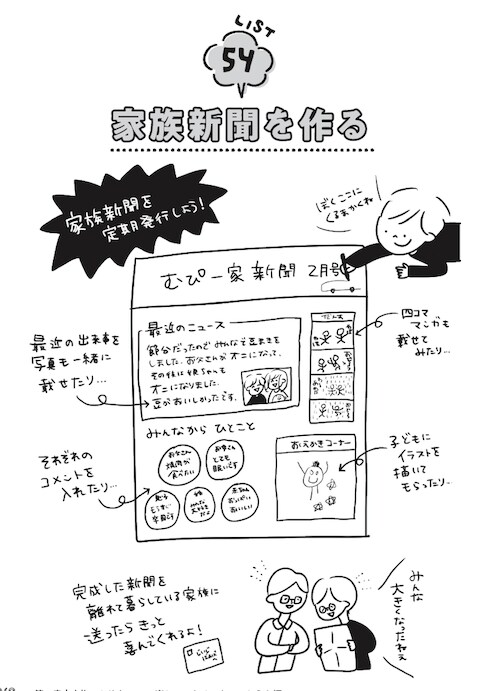 LIST
54
家族新聞を作る
家族新聞を
定期発行しよう!
ぼくここに
くるまかくね
むぴー家新聞 2月号
最近のニュース
節分だったのでみんなで豆まきを
しました。お父さんがオニになって、
その後に妹ちゃんも
オニになりました。
豆がおいしかったです。
最近の出来事を
写真も一緒に
載せたり…
四コマ
マンガも
載せて
みたり…
みんなから ひとこと
お父さん
焼肉が
食べたい
お母さん
とても
眠いです
それぞれの
コメントを
入れたり…
おえかきコーナー
子どもに
イラストを
描いて
もらったり…
完成した新聞を
離れて暮らしている家族に
送ったら きっと
喜んでくれるよ!
みんな
大きくなったねぇ